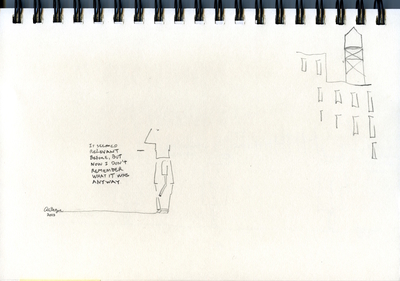 IT SEEMED
RELEVANT
BEFORE, BUT
NOW I DON'T
REMEMBER
WHAT IT WAS
ANYWAY.